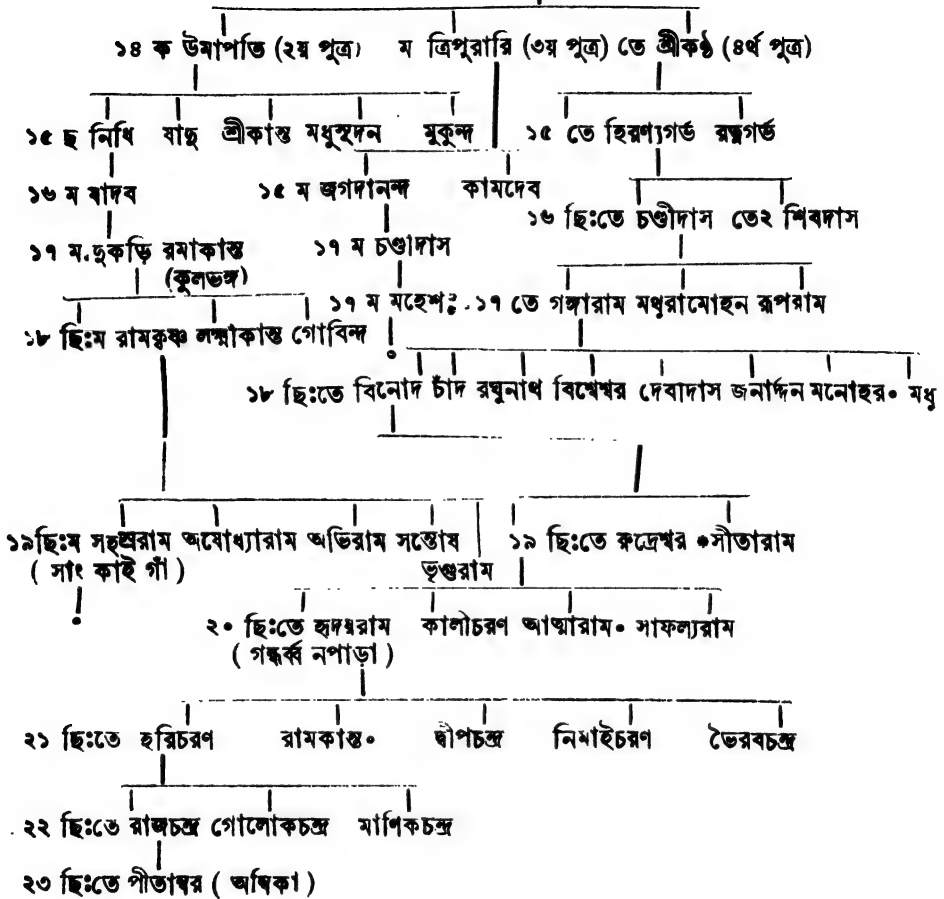 ১৪ ক উমাপতি (২য় পুত্র) ম ত্রিপুরারি (৩য় পুত্র) তে শ্রীকণ্ঠ (৪র্থ পুত্র)
১৫ ছ নিধি যাদু শ্রীকান্ত মধুসূদন মুকুন্দ ১৫ তে হিরণ্যগর্ভ রত্নগর্ভ
১৬ ম যাদব ১৫ ম জগদানন্দ কামদেব
১৬ ছিঃতে চণ্ডীদাস তে২ শিবদাস
১৭ ম.দুকড়ি রমাকান্ত ১৭ ম চণ্ডীদাস
(কুলভঙ্গ)
১৭ ম মহেশ ১৭ তে গঙ্গারাম মথুরামোহন রূপরাম
১৮ ছিঃম রামকৃষ্ণ লক্ষ্মীকান্ত গোবিন্দ
১৮ ছিঃতে বিনোদ চাঁদ রঘুনাথ বিশ্বেশ্বর দেবীদাস জনার্দ্দন মনোহর॰ মধু
১৯ছিঃম সহস্ররাম অযোধ্যারাম অভিরাম সন্তোষ ১৯ ছিঃতে রুদ্রেশ্বর ॰সীতারাম
( সাং কাই গাঁ ) ভৃগুরাম
২০ ছিঃতে হৃদয়রাম কালীচরণ আত্মারাম॰ সাফল্যরাম
( গন্ধর্ব্ব নপাড়া )
২১ ছিঃতে হরিচরণ রামকান্ত॰ দ্বীপচন্দ্র নিমাইচরণ ভৈরবচন্দ্র
২২ ছিঃতে রাজচন্দ্র গোলোকচন্দ্র মাণিকচন্দ্র
২৩ ছিঃতে পীতাম্বর ( অম্বিকা )